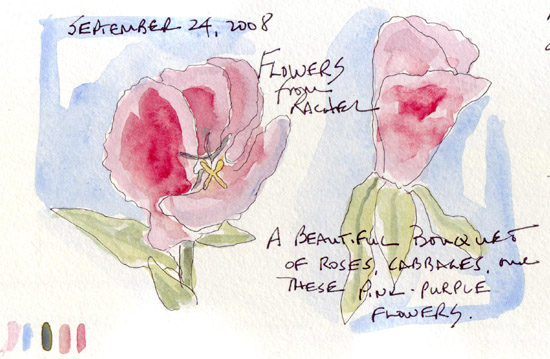 SEPTEMBER 24, 2008
FLOWERS
from
RACHEL
A BEAUTIFUL BOUQUET
OF ROSES, CABBAGES, and
THESE PINK-PURPLE
FLOWERS.